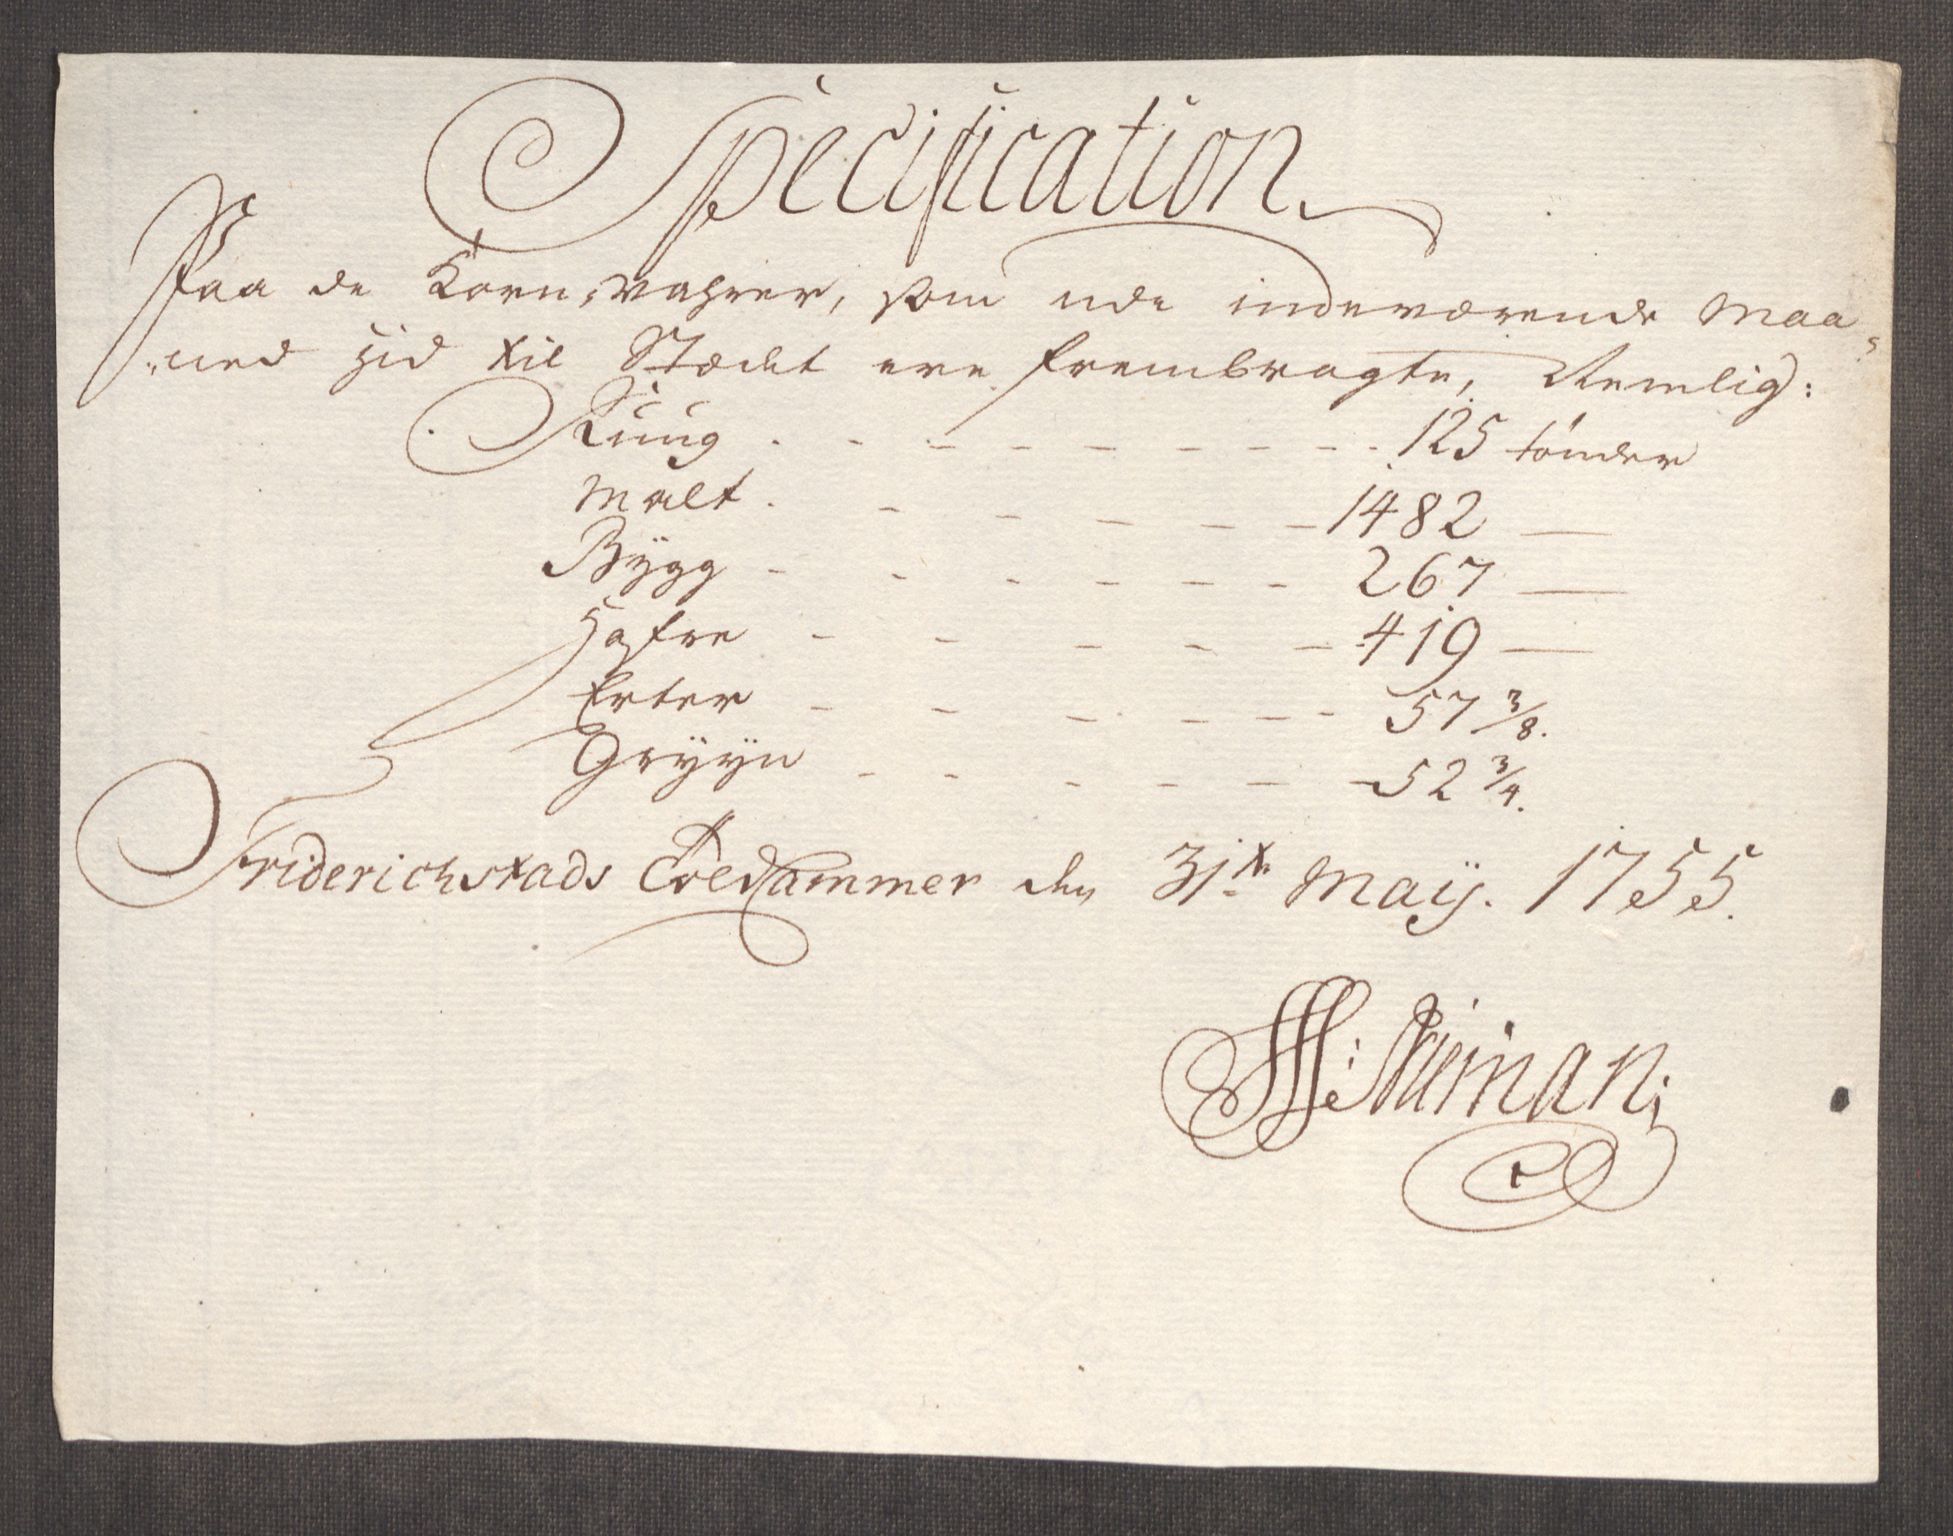 Specification
Paa de Korn-Wahrer, som udi indeværende Maa-
ned hid til Stædet ere frembragte, Nemlig:
Ruug - - - 125 tønder
Malt - - - 1482 —
Bygg - - - 267 —
Hafre - - - 419 —
Erter - - - 57 3/8.
Gryyn - - - 52 3/4.
Friderichstads Toldkammer den 31te Maij. 1755.